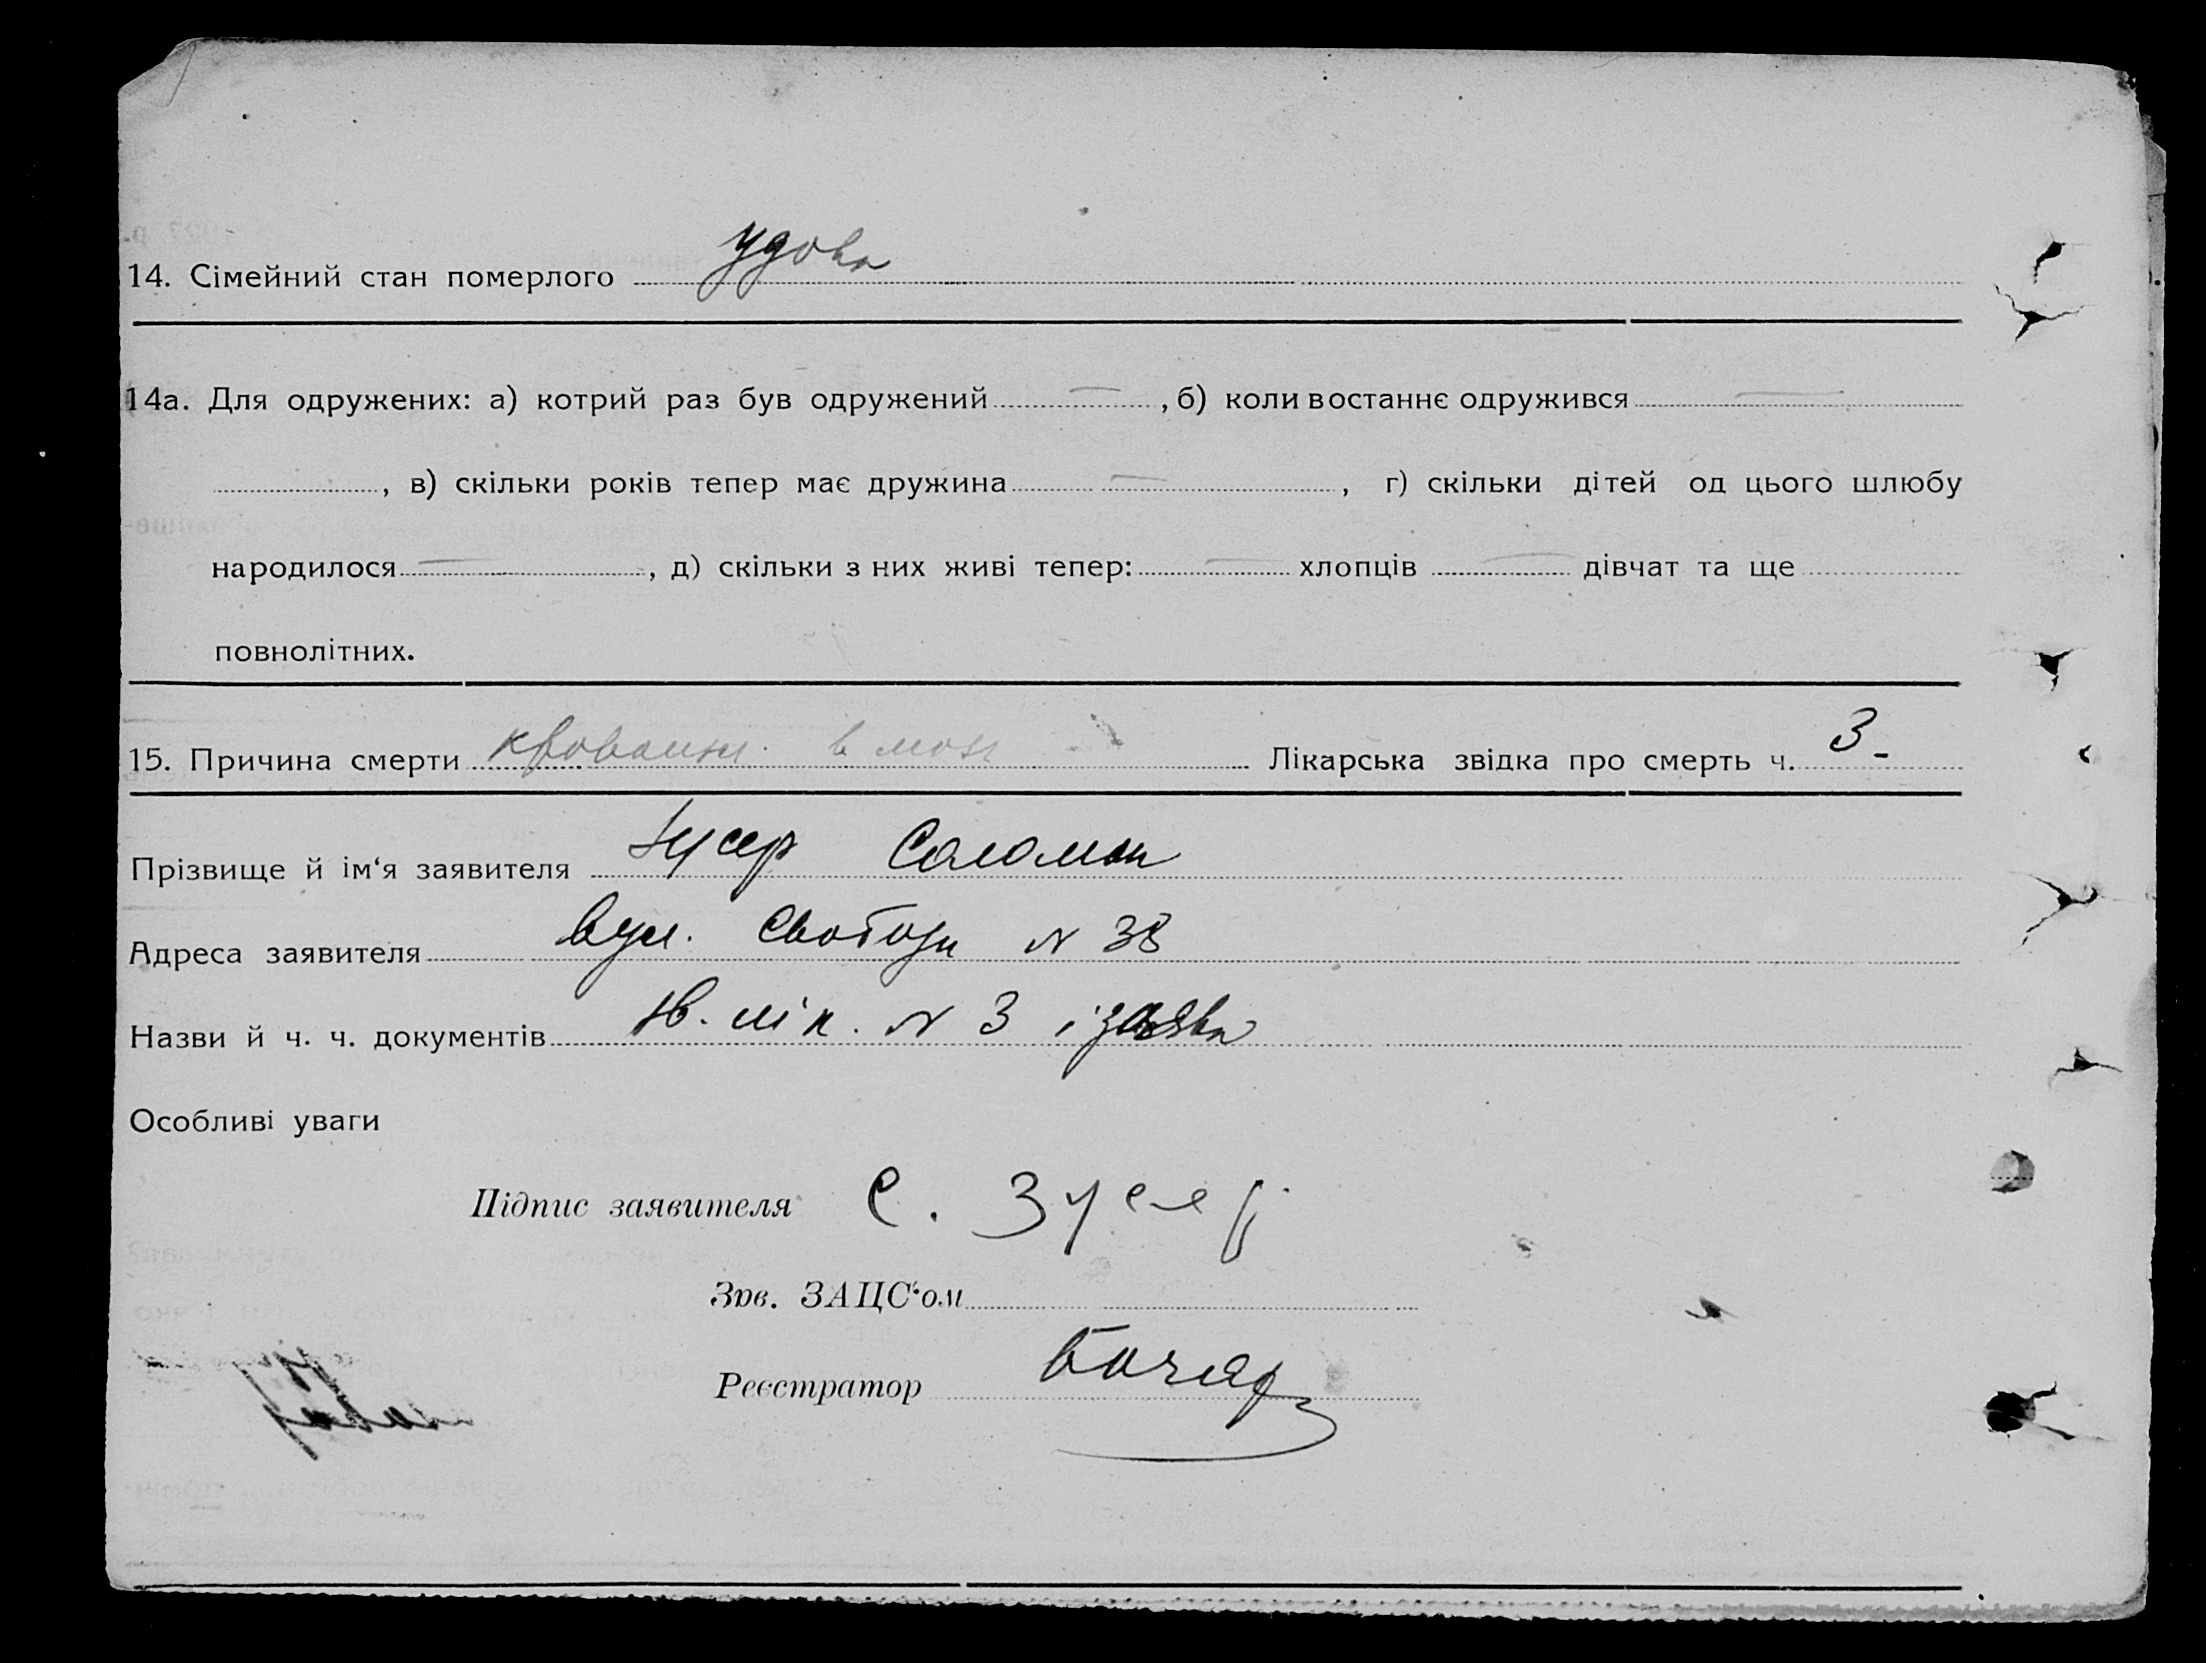 14. Сімейний стан померлого удова
14а. Для одружених: а) котрий раз був одружений — , б) коли востаннє одружився —
, в) скільки років тепер має дружина — , г) скільки дітей од цього шлюбу
народилося — , д) скільки з них живі тепер: — хлопців — дівчат та ще
повнолітних.
15. Причина смерти в Лікарська звідка про смерть ч. 3 -
Прізвище й ім‘я заявителя Зусер Соломон
Адреса заявителя вул. Свободи N 38
Назви й ч. ч. документів лік. N 3 і заява
Особливі уваги
Підпис заявителя С. Зусер
Зав. ЗАЦС‘ом
Реєстратор